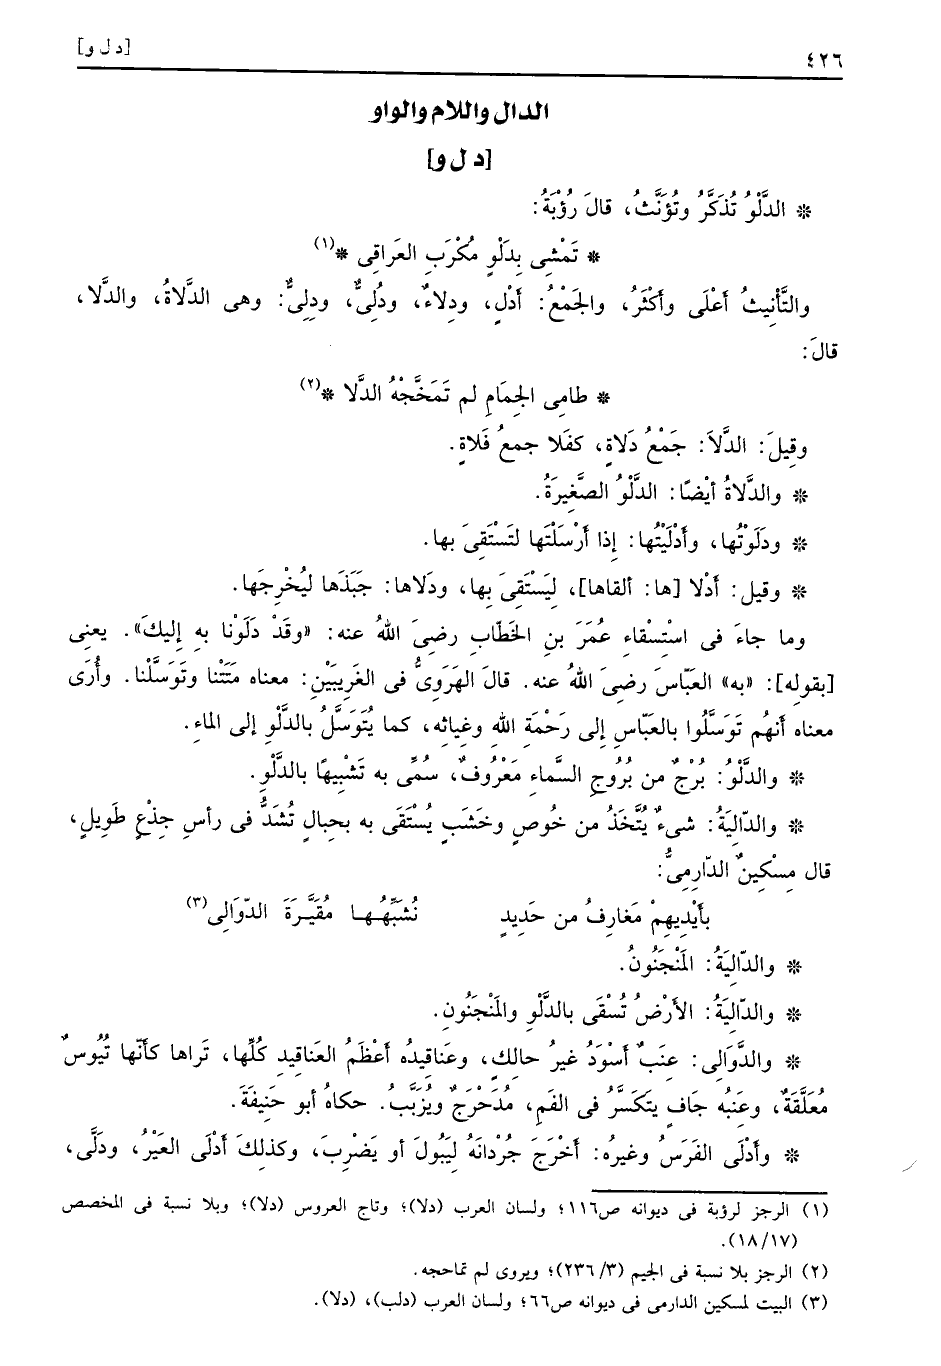 ٤٢٦ [د ل و]
الدال واللام والواو
[د ل و]
* الدَّلْوُ تُذَكَّرُ وتُؤَنَّثُ، قالَ رُؤْبَةُ:
* تَمْشِى بِدَلْوٍ مُكْرَبِ العَراقِى *(١)
والتَّأنِيثُ أعْلَى وأكْثَرُ، والجَمْعُ: أَدْلٍ، ودِلاءٌ، ودُلِىٌّ، ودِلِىٌّ: وهى الدَّلاةُ، والدَّلا،
قالَ:
* طامِى الجِمَامِ لم تَمَخَّجْهُ الدَّلا *(٢)
وقِيلَ: الدَّلاَ: جَمْعُ دَلاةٍ، كفَلا جمعُ فَلاةٍ.
* والدَّلاةُ أيْضًا: الدَّلْوُ الصَّغِيرَةُ.
* ودَلَوْتُها، وأدْلَيْتُها: إذا أرْسَلْتَها لتَسْتَقِىَ بها.
* وقيل: أدْلا [ها: ألقاها]، لِيَسْتَقِىَ بِها، ودَلاها: جَبَذَها ليُخْرِجَها.
وما جاءَ فى اسْتِسْقاء عُمَرَ بنِ الخَطَّابِ رضىَ اللهُ عنه: «وقَدْ دَلَوْنا به إليكَ». يعنى
[بقوله]: «به» العَبّاسَ رضىَ اللهُ عنه. قالَ الهَرَوِىُّ فى الغَرِيبَيْنِ: معناه مَتَتْنا وتَوَسَّلْنا. وأُرَى
معناه أنهُم تَوَسَّلُوا بالعَبّاسِ إلى رَحْمَةِ الله وغياثه، كما يُتَوَسَّلُ بالدَّلْوِ إلى الماء.
* والدَّلْوُ: بُرْجٌ من بُرُوجِ السَّماء مَعْرُوفٌ، سُمِّى به تَشْبِيهًا بالدَّلْوِ.
* والدّالِيَةُ: شىءٌ يُتَّخَذُ من خُوصٍ وخَشَبٍ يُسْتَقَى به بحبال تُشَدُّ فى رأسِ جِذْعٍ طَوِيلٍ،
قال مِسْكِينٌ الدّارِمِىُّ:
بأَيْدِيهِمْ مَغارِفُ من حَدِيدٍ نُشَبِّهُها مُقَيَّرَةَ الدّوَالِى(٣)
* والدّالِيَةُ: المَنْجَنُونُ.
* والدّالِيَةُ: الأَرْضُ تُسْقَى بالدَّلْوِ والمَنْجَنُونِ.
* والدَّوَالِى: عِنَبٌ أسْوَدُ غيرُ حالك، وعَناقِيدُه أعْظَمُ العَناقِيدِ كُلِّها، تَراها كأنّها تُيُوسٌ
مُعَلَّقَةٌ، وعِنَبُه جافٍ يتكَسَّرُ فى الفَمِ، مُدَحْرَجٌ ويُزَبَّبُ. حكاهُ أبو حَنِيفَةَ.
* وأَدْلَى الفَرَسُ وغيرُه: أخْرَجَ جُرْدانَهُ لِيَبُولَ أو يَضْرِبَ، وكذلكَ أدْلَى العَيْرُ، ودَلَّى،
(١) الرجز لرؤبة فى ديوانه ص١١٦؛ ولسان العرب (دلا)؛ وتاج العروس (دلا)؛ وبلا نسبة فى المخصص
(١٨/١٧).
(٢) الرجز بلا نسبة فى الجيم (٢٣٦/٣)؛ ويروى لم تماحجه.
(٣) البيت لمسكين الدارمى فى ديوانه ص٦٦؛ ولسان العرب (دلب)، (دلا).